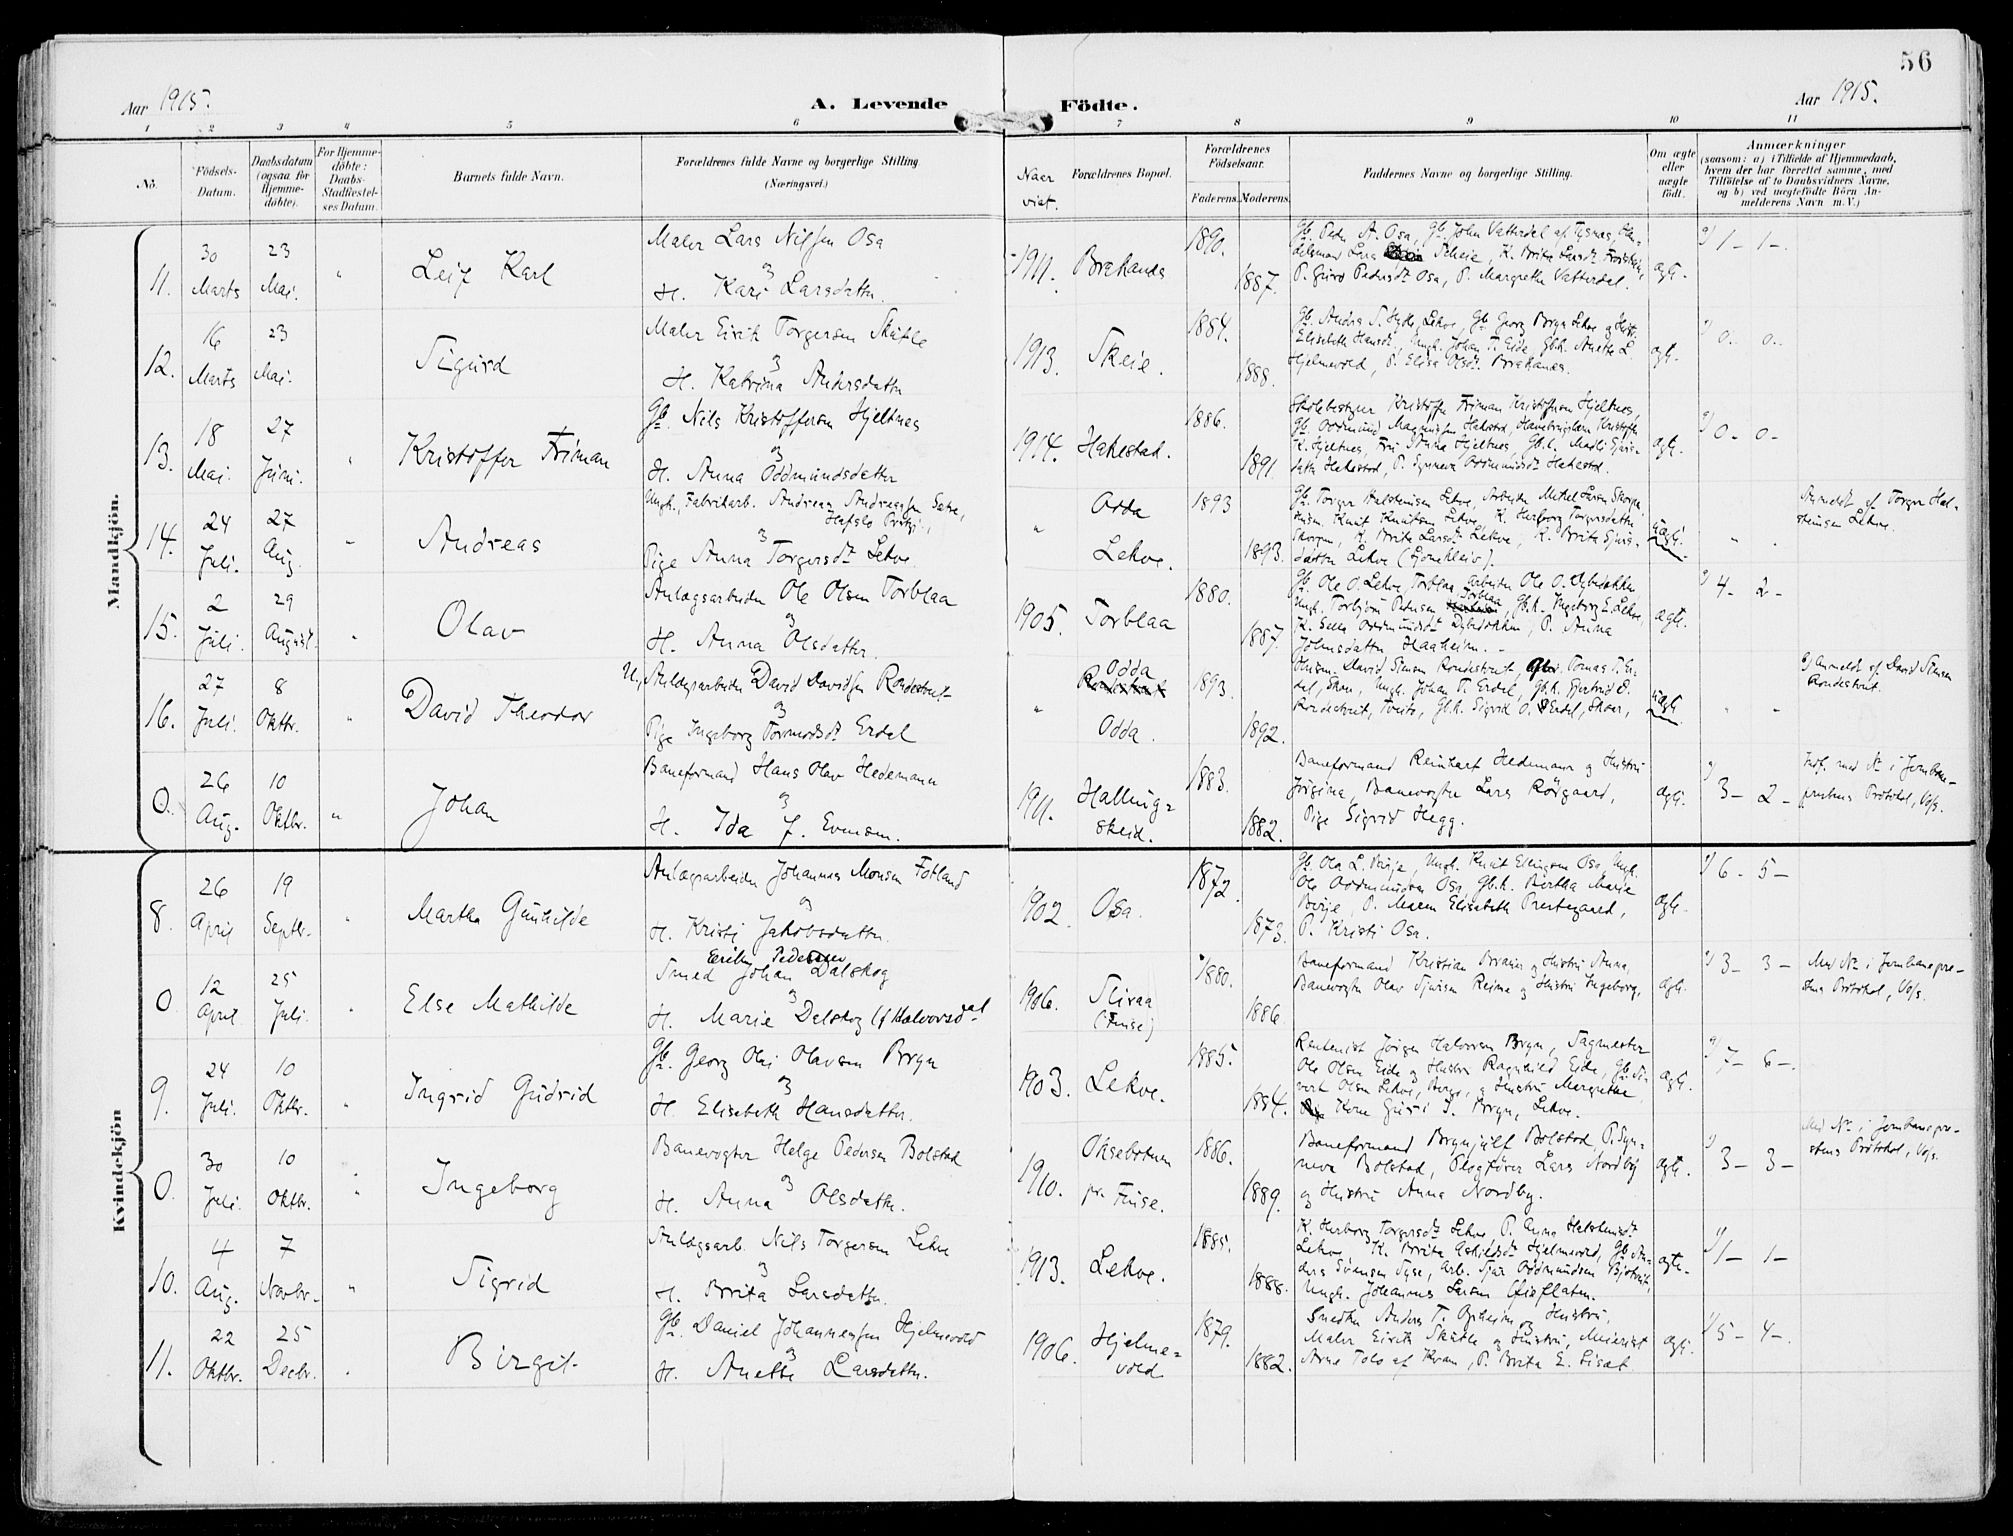 56
Aar 1915.
A. Levende Födte.
Aar 1915.
1 2 3 4 5 6 7 8 9 10 11
No.
Födsels-
Datum.
Daabsdatum
(ogsaa for
Hjemme-
döbte).
For Hjemme-
döbte:
Daabs-
Stadfæstel-
ses Datum.
Barnets fulde Navn.
Forældrenes fulde Navne og borgerlige Stilling.
(Næringsvei.)
Naar
viet.
Forældrenes Bopæl.
Forældrenes
Födselsaar.
Faderens. Moderens.
Faddernes Navne og borgerlige Stilling.
Om ægte
eller
uægte
födt.
Anmærkninger
(saasom: a) i Tilfælde af Hjemmedaab,
hvem der har forrettet samme, med
Tilföielse af to Daabsvidners Navne,
og b) ved uegtefödte Börn An-
melderens Navn m. V.)
Mandkjön.
11.
30
Marts
23
Mai.
"
Leif Karl
Maler Lars Nilssen Osa
og
H. Kari Larsdatter.
1911.
Brakanes
1890.
1887.
Gb. Peder A. Osa, Gb. John Vatterdal af Tysnes, Han-
delsmand Lars Skeie, K. Brita Larsdt
P. Guro Pedersdt Osa, P. Margrethe Vatterdal.
ægt.
1 - 1 -
12.
16
Marts
23
Mai.
Sigurd
Maler Eirik Torgersen Skaftle
og
H. Katrina Andersdatter
1913.
Skeie.
1884.
1888.
Gb. Andres S. Hylle, Lekve, Gb. Georg Bryn Lekve og Hustr.
Elisabeth Hansdt., Ungk. Johan T. Eide, Gb.k. Anette L.
Hjelmevold, P. Elisa Olsdt. Brakanes.
ægt.
0 - 0 -
13.
18
Mai.
27
Juni.
"
Kristoffer Friman
Gb. Nils Kristoffersen Hjeltnes
og
H. Anna Oddmundsdatter
1914.
Hakestad.
1886.
1891.
Skolebestyrer Kristoffer Friman Kristoffersen Hjeltnes,
Gb. Oddmund Magnussen Hakestad, Havebrugslærer Kristoffer
K. Hjeltnes, Fru Anna Hjeltnes, Gb.k. Madli Sjurs-
datter Hakestad, P. Synneva Oddmundsdt Hakestad.
ægt.
0 - 0 -
14.
24
Juli.
27
Aug.
"
Andreas
Ungk., Fabrikarb. Andreas Andreassen Sætre,
Hafslo Prstgj.,
og
Pige Anna Torgersdt Lekve.
"
Odda
Lekve.
1893
1893.
Gb. Torger Halsteinsen Lekve, Arbeider Mikal Larsen Skorpen,
Husm. Knut Knutsen Lekve, K. Herborg Torgersdatter
Skorpen, K. Brita Larsdt Lekve, K. Brita Sjurs-
datter Lekve
uægt.
" "
Anmeldt af Torger Hal-
steinsen Lekve.
15.
2
Juli.
29
August.
"
Olav
Anlægsarbeider Ole Olsen Torblaa
og
H. Anna Olsdatter.
1905.
Torblaa
1880.
1887.
Gb. Ole O. Lekve, Torblaa, arbeider Ole O. Dybedokken,
Ungk. Torbjörn Pedersen Torblaa, Gb.k. Ingeborg E. Lekve,
K. Sella Oddmundsdt Dybedokken, P. Anna
Johnsdatter Haaheim.
ægt.
4 - 2 -
16.
27
Juli.
8
Oktbr.
"
U., Anlægsarbeider David Davidsen Rondestveit
David Theodor
og
Pige Ingeborg Tormodsdt Erdal
"
Odda
Rondestveit
Odda.
1893.
1892.
Husm. David Simson Rondestveit, Gbr. Tomas T. Er-
dal, Skaar, Ungk. Johan T. Erdal, Gb.k. Gjertrud D.
Rondestveit, Tveito, Gb.k. Sigrid O. Erdal, Skaar,
uægt.
" "
Anmeldt af David Simson
Rondestveit.
0.
26
Aug.
10
Oktbr.
"
Johan
Baneformand Hans Olav Hedemann
og
H. Ida J. Evensen.
1911.
Halling-
skeid.
1883.
1882.
Baneformand Reinhart Hedemann og Hustru
Jörgina, Banevogter Lars Rödgaard,
Pige Sigrid Hegg.
ægt.
3 - 2 -
Indf. med No i Jernbane-
prestens Protokol, Voss.
Kvindekjön
8.
26
April
19
Septbr.
"
Martha Gunhilde
Anlægsarbeider Johannes Monsen Fotland
og
H. Kristi Jakobsdatter.
1902.
Osa.
1872.
1873.
Gb. Ola L. Börje, Ungk. Knut Ellingsen Osa, Ungk.
Ole Oddmundsen Osa, Gb.k. Bertha Marie
Börje, P. Maren Elisabeth Prestegaard,
P. Kristi Osa.
ægt.
6 - 5 -
0
12
April
25
Juli.
"
Else Mathilde
Erik Pedersen
Smed Johan Dalskog
og
H. Marie Dalskog (f. Halvorsdat
1906.
Sliraa
(Finse)
1880.
1886.
Baneformand Kristian Braain og Hustru Anna,
Banevogter Olav Sjursen Reime og Hustru Ingeborg.
ægt.
3 - 3 -
Med No i Jernbanepre-
stens Protokol, Voss.
9.
24
Juli.
10
Oktbr.
"
Ingrid Gudrid
Gb. Georg Oli Olavsen Bryn
og
H. Elisabeth Hansdatter.
1903.
Lekve.
1885.
1884.
Rentenist Jörgen Halvorsen Bryn, Sagmester
Ole Olsen Eide og Hustru Ragnhild Eide, Gb. Si-
vert Olsen Lekve, Berge, og Hustru Margrethe,
Kone Guri J. Bryn, Lekve.
ægt.
7 - 6 -
0.
30
Juli.
10
Oktbr.
"
Ingeborg
Banevogter Helge Pedersen Bolstad
og
H. Anna Olsdatter.
1910.
Oksebotnen
pr. Finse.
1886.
1889.
Baneformand Brynjulf Bolstad, P. Syn-
neva Bolstad, Plogfører Lars Nordby
og Hustru Anna Nordby.
ægt.
3 - 3 -
Med No i Jernbanepre-
stens Protokol, Voss.
10.
4
Aug.
7
Novbr.
"
Sigrid
Anlægsarb. Nils Torgersen Lekve
og
H. Brita Larsdatter.
1913.
Lekve.
1885.
1888.
K. Herborg Torgersdt Lekve, P. Anna Halsteinsdt
Lekve, K. Brita Askildsdt Hjelmevold, Gb. An-
ders Svensen Tyse, arb. Sjur Oddmundsen Bjotveit,
Ungk. Johannes Larsen
ægt.
1 - 1 -
11.
22
Oktbr.
25
Decbr.
"
Birgit
Gb. Daniel Johannessen Hjelmevold
og
H. Anette Larsdatter.
1906.
Hjelme-
vold
1879.
1882.
Snedker Anders T. Opheim og Hustru,
Maler Eirik Skaftle og Hustru, Meierist
Arne Tolo af Kvam, P. Brita E. Lisat
ægt.
5 - 4 -